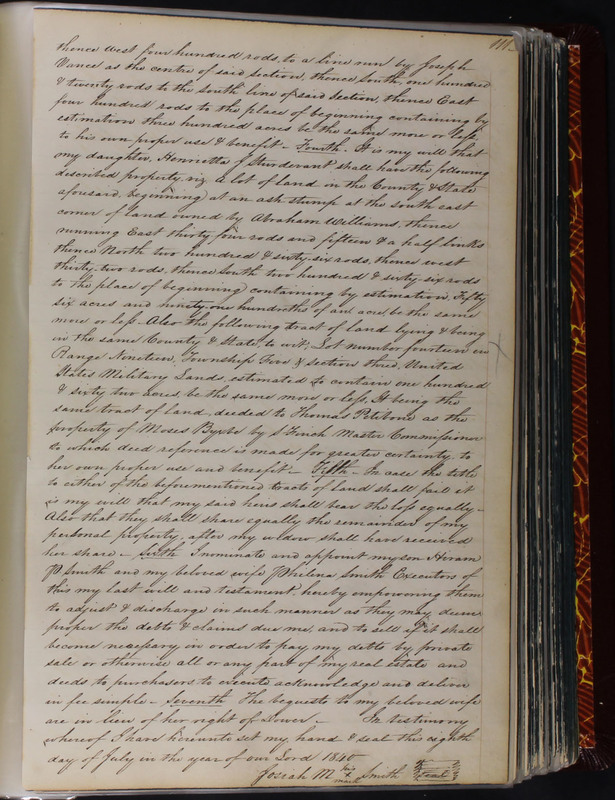 111
thence West four hundred rods, to a line run by Joseph
Vance as the centre of said section, thence South, one hundred
& twenty rods to the south line of said Section, thence East
four hundred rods to the place of beginning containing by
estimation three hundred acres be the same more or less,
to his own proper use & benefit – Fourth. It is my will that
my daughter, Henrietta J Sturdevant shall have the following
described property viz A lot of land in the County & State
aforesaid, beginning at an ash stump at the south east
corner of land owned by Abraham Williams, thence
running East thirty four rods and fifteen & a half links
thence North two hundred & sixty-six rods, thence west
thirty-two rods, thence South two hundred & sixty-six rods
to the place of beginning containing by estimation, Fifty
six acres and ninety one hundreths of an acre be the same
more or less – Also the following tract of land lying & being
in the same County & State, to wit; Lot number fourteen in
Range Nineteen, Township Five & section three, United
States Military Lands, estimated to contain one hundred
& sixty two acres, be the same more or less, It being the
same tract of land, deeded to Thomas Petibone as the
property of Moses Byxbe by S Finch Master Commissioner
to which deed reference is made for greater certainty, to
her own proper use and benefit – Fifth – In case the title
to either of the beforementioned tracts of land shall fail it
is my will that my said heirs shall bear the loss equally –
Also that they shall share equally the remainder of my
personal property, after my widow shall have received
her share – Sixth I nominate and appoint my son Hiram
P. Smith and my beloved wife Philena Smith Executors of
this my last will and testament, hereby empowering them
to adjust & discharge in such manner as they may deem
proper the debts & claims due me, and to sell if it shall
become necessary in order to pay my debts by private
sale or otherwise all or any part of my real estate and
deeds to purchasers to execute acknowledge and deliver
in fee simple – Seventh The bequests to my beloved wife
are in lieu of her right of Dower – In testimony
whereof I have hereunto set my hand & seal this eighth
day of July in the year of our Lord 1846
Josiah M his x mark Smith Seal